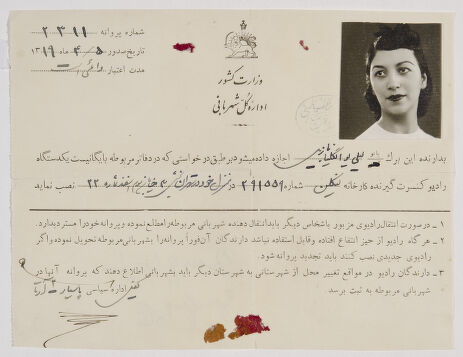 شماره پروانه ۲۳۱۱
تاریخ صدور ۵ - ۴ ماه ۱۳۱۹
مدت اعتبار
وزارت کشور
اداره کل شهربانی
بدارنده این برگ بانو اجازه داده میشود بر طبق درخواستی که در دفاتر مربوطه بایگانیست یکدستگاه
رادیو کنسرت گیرنده کارخانه شماره ۲۹۱۵۵۹ در منزل خود در تهران نصب نماید
۱ - در صورت انتقال رادیوی مزبور باشخاص دیگر باید انتقال دهنده شهربانی مربوطه را مطلع نموده و پروانه خود را مسترد بدارد.
۲ - هر گاه رادیو از حیز انتفاع افتاده و قابل استفاده نباشد دارندگان آن فوراً پروانه را بشهربانی مربوطه تحویل نموده و اگر
رادیوی جدیدی نصب کنند باید تجدید پروانه شود.
۳ - دارندگان رادیو در مواقع تغییر محل از شهرستانی به شهرستان دیگر باید بشهربانی اطلاع دهند که پروانه آنها در
شهربانی مربوطه به ثبت برسد.
اداره سیاسی